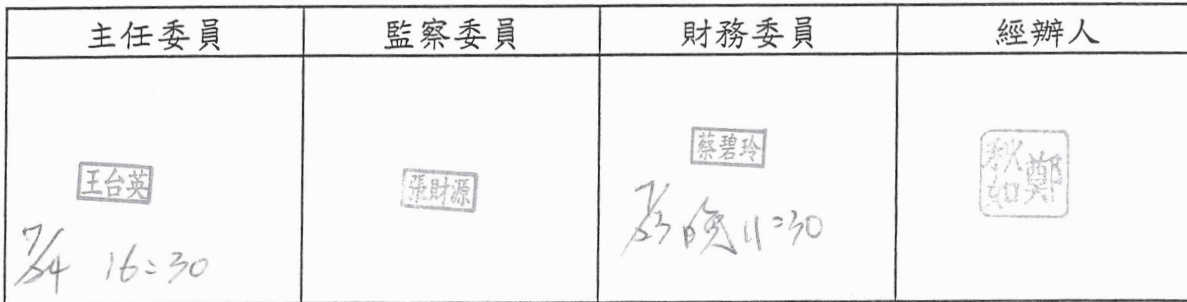 主任委員
監察委員
財務委員
經辦人
王台英
7/24 16:30
張財源
蔡碧玲
7/23 晚 11:30
鄭秋如